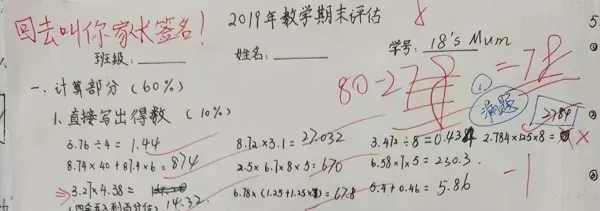 回去叫你家长签名!
2019年数学期末评估
班级: 姓名: 学号: 18's Mum
80-2 = 78
一、计算部分 (60%)
1. 直接写出得数 (10%)
满题
2784
5.76÷4= 1.44 8.72×3.1= 27.032 3.472÷8=0.434 2.784×125×8=
8.74×40+87.4×6= 874 2.5×6.7×8×5= 670 6.58×7×5= 230.3
-1
3.27×4.38≈ 6.78×(1.25+1.25× )= 67.8 5.4+0.46= 5.86
(四舍五入到百分位) 14.32
5